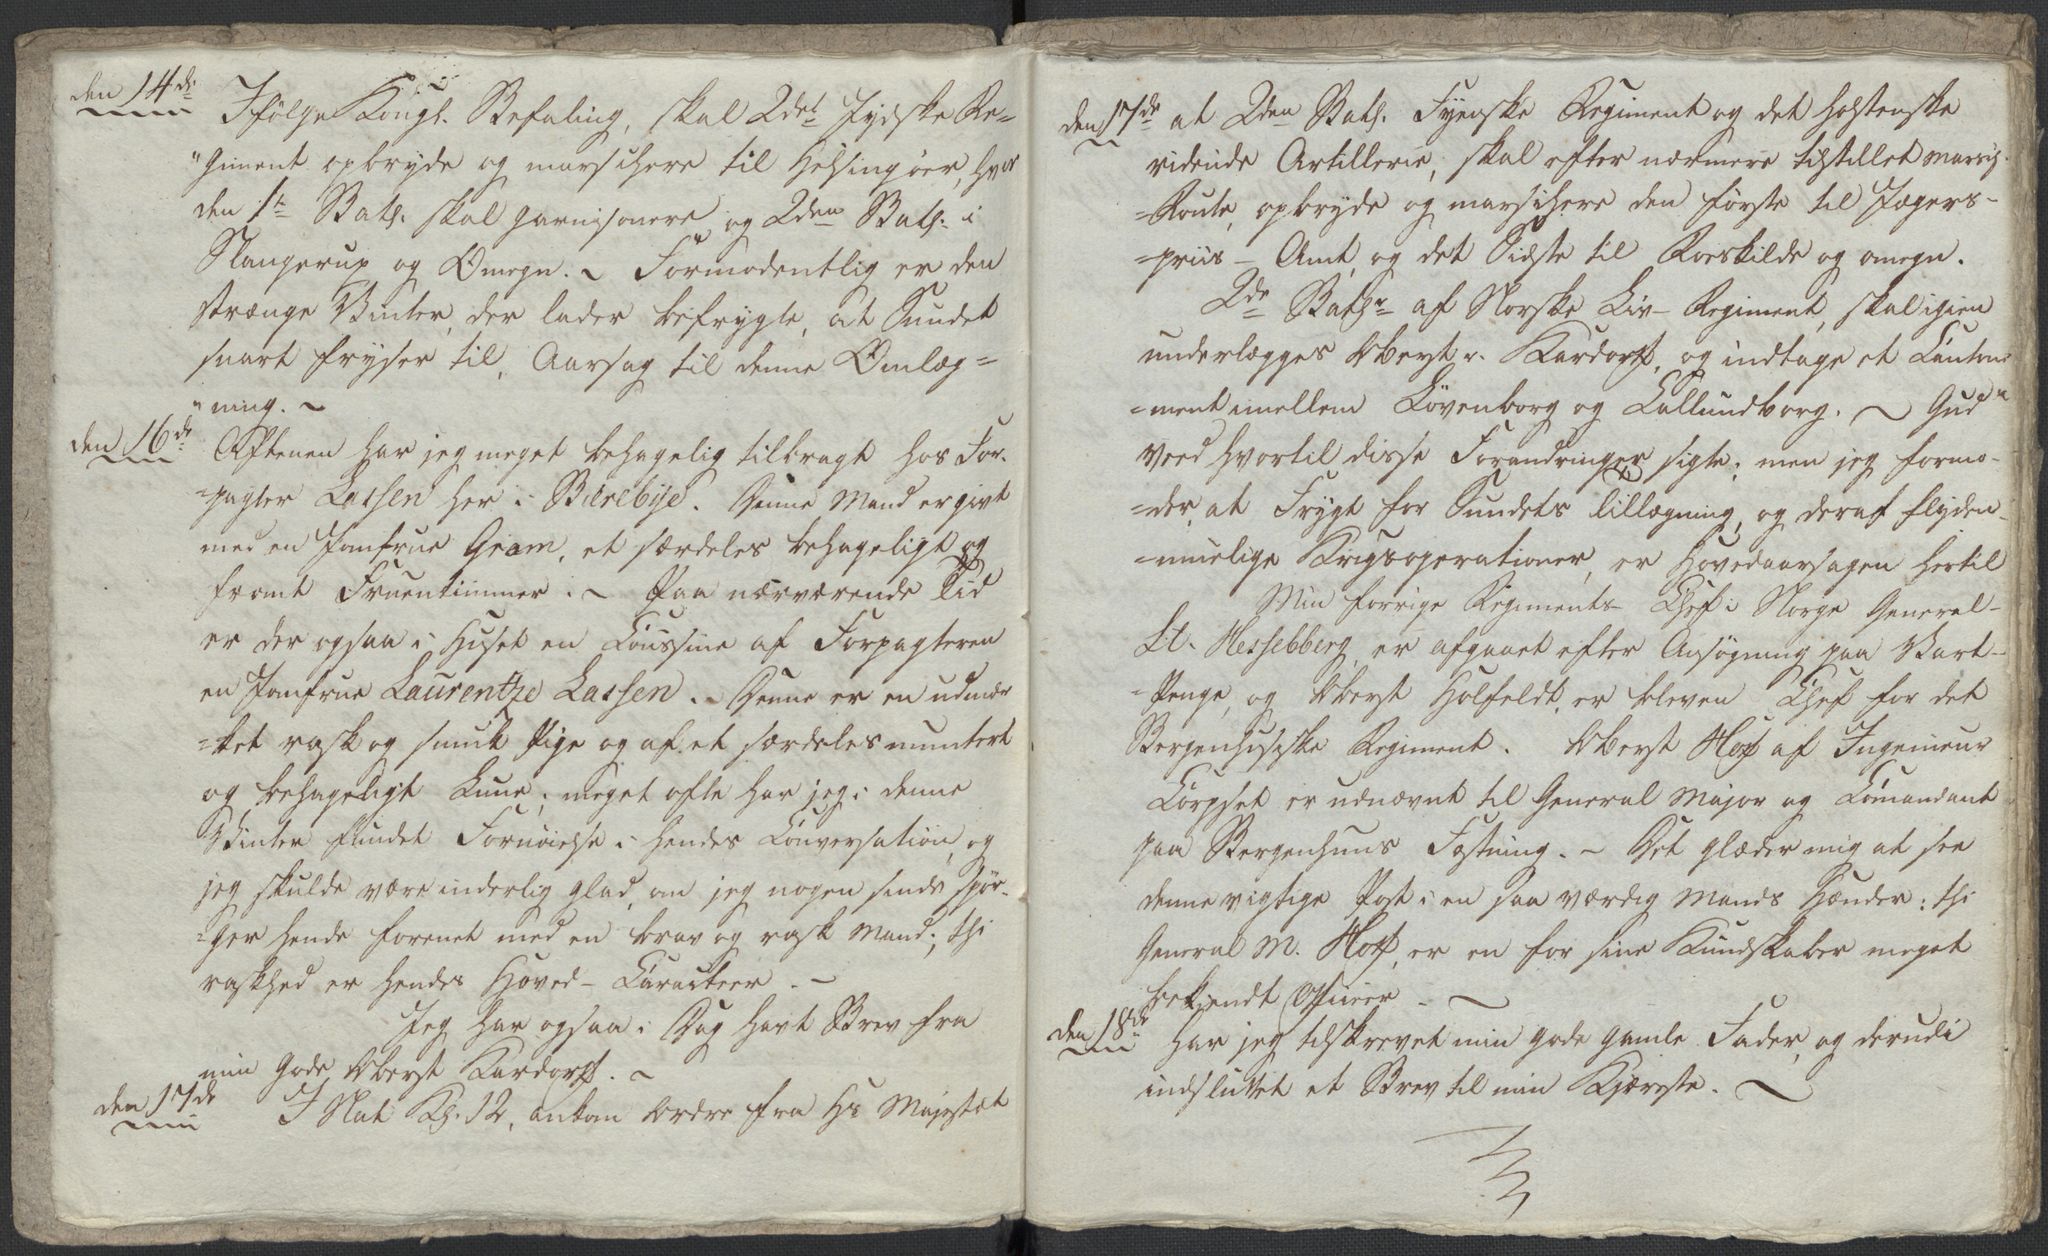 den 14de Ifølge Kongl. Befaling, skal 2det Jydske Re=
"giment opbryde og marschere til Helsingöer, hvor
den 1te Batl. skal garnisonere og 2den Batl. i
Slangerup og Omegn. ~ Formodentlig er den
strænge Vinter, der lader befrygte, at Sundet
snart fryser til, Aarsag til denne Omlæg=
"ning. ~
den 16de Aftenen har jeg meget behagelig tilbragt hos For-
=pagter Lassen her i Bierebÿe. Denne Mand er givt
med en Jomfrue Gram, et særdeles behageligt og
fromt Fruentimmer. ~ Paa nærværende Tid
er der ogsaa i Huset en Coussine af Forpagteren
en Jomfrue Laurentze Lassen. Denne er en udmær
=ket rask og smuk Pige og af et særdeles muntert
og behageligt Lune; meget ofte har jeg i denne
Vinter fundet Fornöielse i hendes Conversation, og
jeg skulde være inderlig glad, om jeg nogen sinde spör-
=ger hende forenet med en brav og rask Mand; thi
raskhed er hendes Hoved- Caracteer. ~
Jeg har ogsaa i Dag havt Brev fra
min gode Oberst Kardorff. ~
den 17de I Nat Kl. 12, ankom Ordre fra Hs Majestæt
den 17de at 2den Batl. Fyenske Regiment og det holstenske
ridende Artillerie, skal efter nærmere tilstillet Marsch-
=Route, opbryde og marschere den förste til Jægers-
=priis - Amt, og det Sidste til Roeskilde og omegn.
2de Batlr af Norske Liv- Regiment, skal igien
underlægges Oberst v. Kardorff, og indtage et Canton
=ment imellem Lövenborg og Callundborg. ~ Gud
veed hvortil disse Forandringer sigte; men jeg formo-
=der, at Frygt for Sundets Tillægning, og deraf flyden-
=muelige Krigsoperationer, er Hovedaarsagen hertil
Min forrige Regiments- Chef i Norge General-
Lt. Hesselberg, er afgaaet efter Ansögning paa Vart-
=Penge, og Oberst Holfeldt, er bleven Chef for det
Bergenhusiske Regiment. Oberst Hoff af Ingenieur
Corpset er udnævnt til General Major og Comandant
paa Bergenhuus Fæstning. ~ Det glæder mig at see
denne vigtige Post i en saa værdig Mands Hænder; thi
General M. Hoff, er en for sine Kundskaber meget
bekjendt Officier. ~
den 18de Har jeg tilskrevet min gode gamle Fader, og derudi
indsluttet et Brev til min Kjæreste. ~